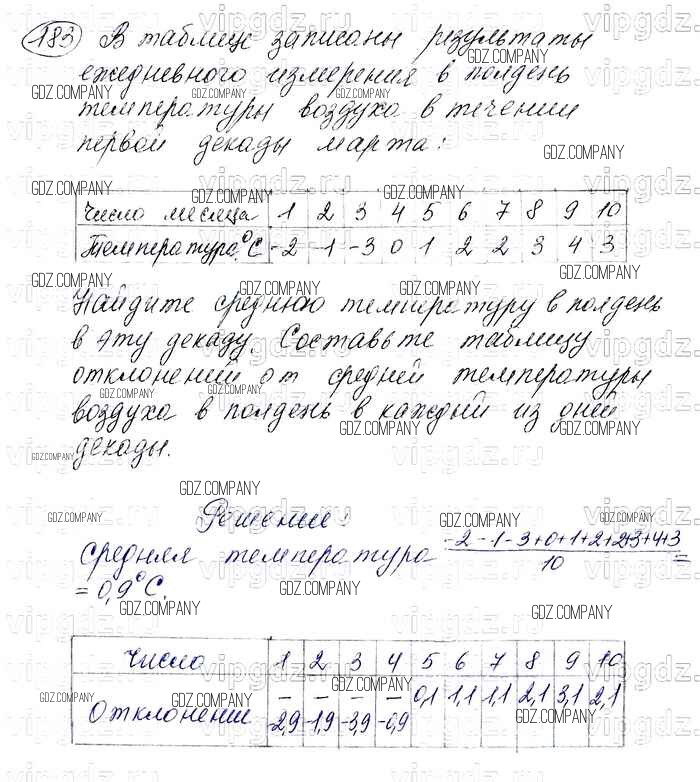 183 В таблице записаны результаты
ежедневного измерения в полдень
температуры воздуха в течении
первой декады марта:
Число месяца 1 2 3 4 5 6 7 8 9 10
Температура °C -2 -1 -3 0 1 2 2 3 4 3
Найдите среднюю температуру в полдень
в эту декаду. Составьте таблицу
отклонений от средней температуры
воздуха в полдень в каждый из дней
декады.
Решение:
средняя температура -2-1-3+0+1+2+2+3+4+3
10 =
= 0,9°C.
Число 1 2 3 4 5 6 7 8 9 10
Отклонений -2,9 -1,9 -3,9 -0,9 0,1 1,1 1,1 2,1 3,1 2,1